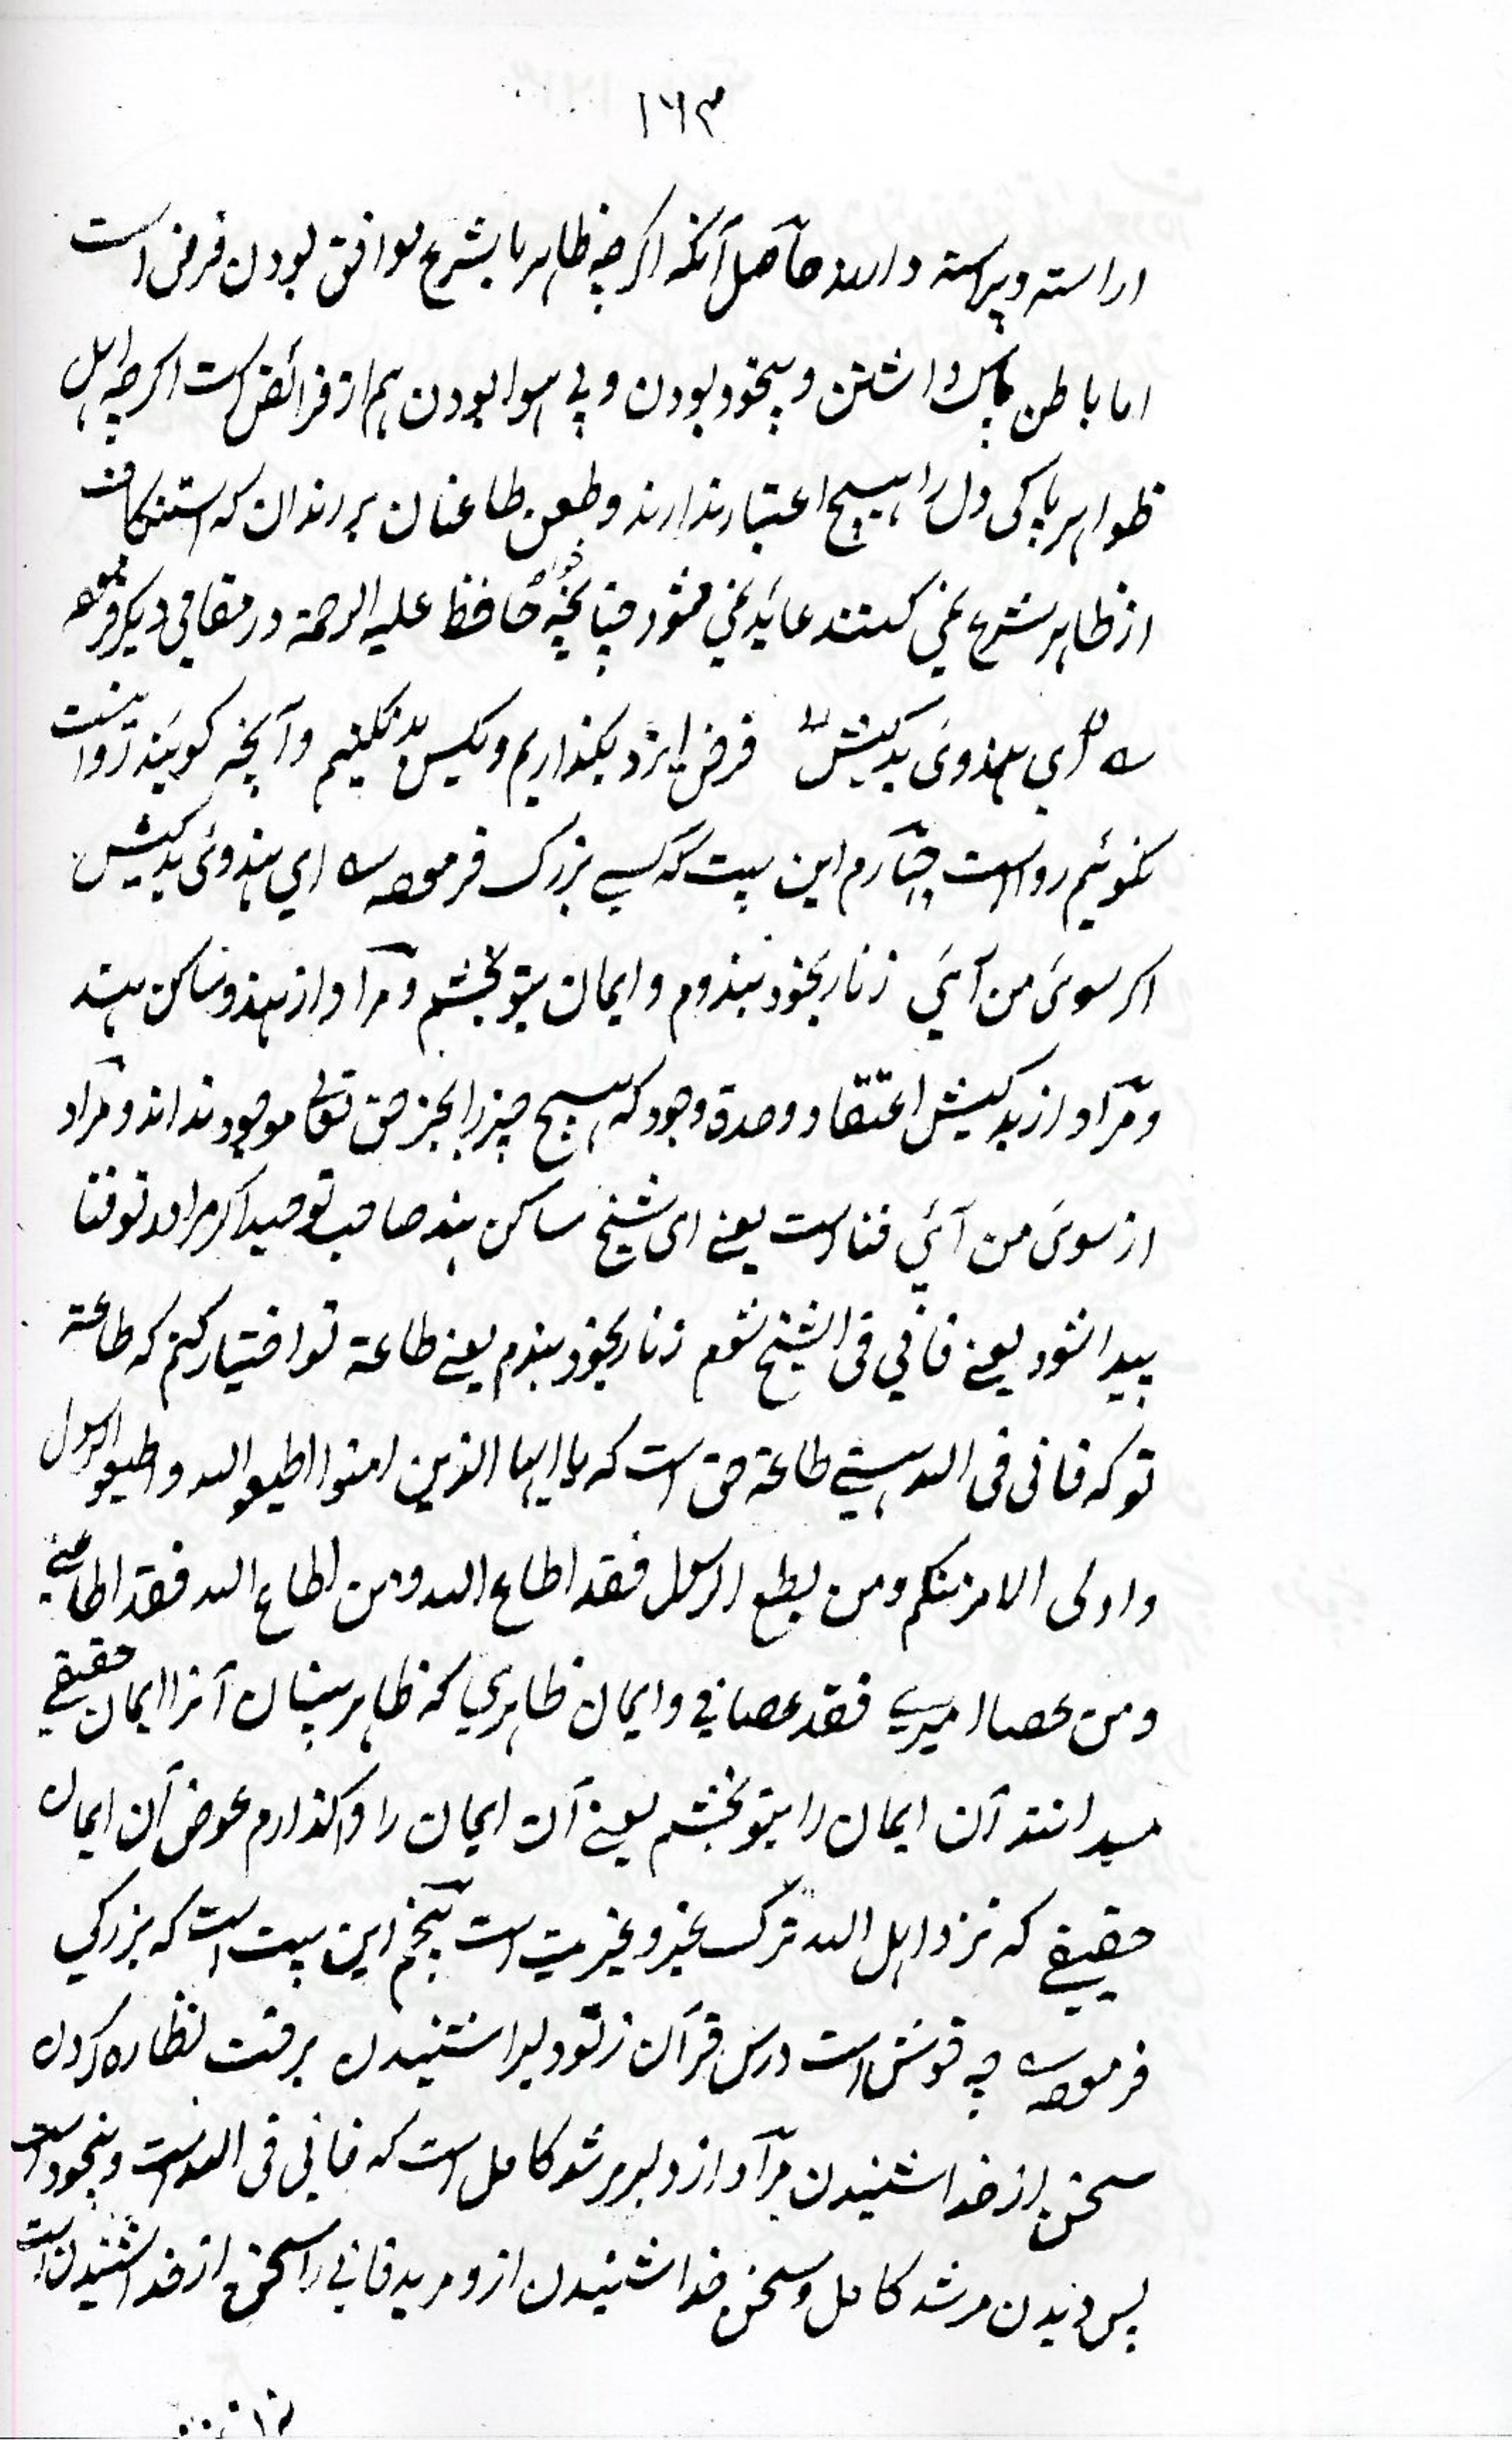 ۱۶۳
اراسته وپیراسته دارند حاصل آنکه اکرچه ظاهر با بشرع موافق بودن فرض است
اما باطن پاک داشتن وبیخود بودن وبی سوا بودن هم از فرائض است اکرچه اهل
ظواهر پاکی دل را هیچ اعتبار ندارند وطعن طاعنان بر رندان که استنکاف
از ظاهر شرع نمی کنند عاید نمی شود چنانچه خود حافظ علیه الرحمة در مقامی دیکر فرموده
فرض ایزد بکذاریم وبکس بد نکنیم وآنچه کویند روا نیست
نکوئیم رواست چهارم این بیت که کسی بزرک فرموده اي هندوئ بدکیش
اکر سوئ من آئي زنار بخود بندوم وایمان بتو بخشم ومراد از هندو ساکن هند
ومراد از بدکیش اعتقاد وحدة وجود که هیچ چیز را بجز حق تعالی موجود نداند ومراد
از سوئ من آئي فناست یعنے ای شیخ ساکن هند صاحب توحید اکر مرا در تو فنا
پیدا شود یعنے فاني فی الشیخ شوم زنار بخود بندم یعنے طاعة تو اختیار کنم که طاعة
تو که فانی فی الله هستے طاعة حق است که یا ایها الذین امنوا اطیعوالله واطیعوالرسول
واولی الامر منکم ومن یطع الرسول فقد اطاع الله ومن اطاع الله فقد اطاعنے
ومن عصا امیرے فقد عصاني وایمان ظاهري که ظاهر بینان آنرا ایمان حقیقے
میدانند آن ایمان را بتو بخشم یعنے آن ایمان را واکذارم عوض آن ایمان
حقیقے که نزد اهل الله ترک غیر وغیریت است پنجم این بیت است که بزرکي
فرموده چه خوش است درس قرآن ز تو دلبرا شنیدن برخت نظاره کردن
سخن از خدا شنیدن مراد از دلبر مرشد کامل است که فاني فی الله است وبیخود است
پس دیدن مرشد کامل وسخن خدا شنیدن از و مرید فاني را سخن از خدا شنیدن است